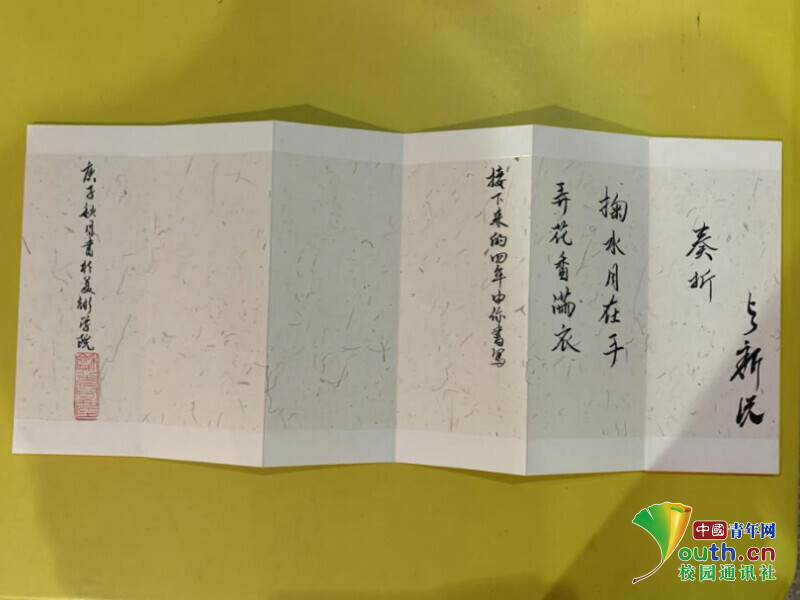 与新说
奏折
掬水月在手
弄花香满衣
接下来的四年由你书写
庚子秋月书于美术学院
中國青年网
Youth.cn
校园通讯社